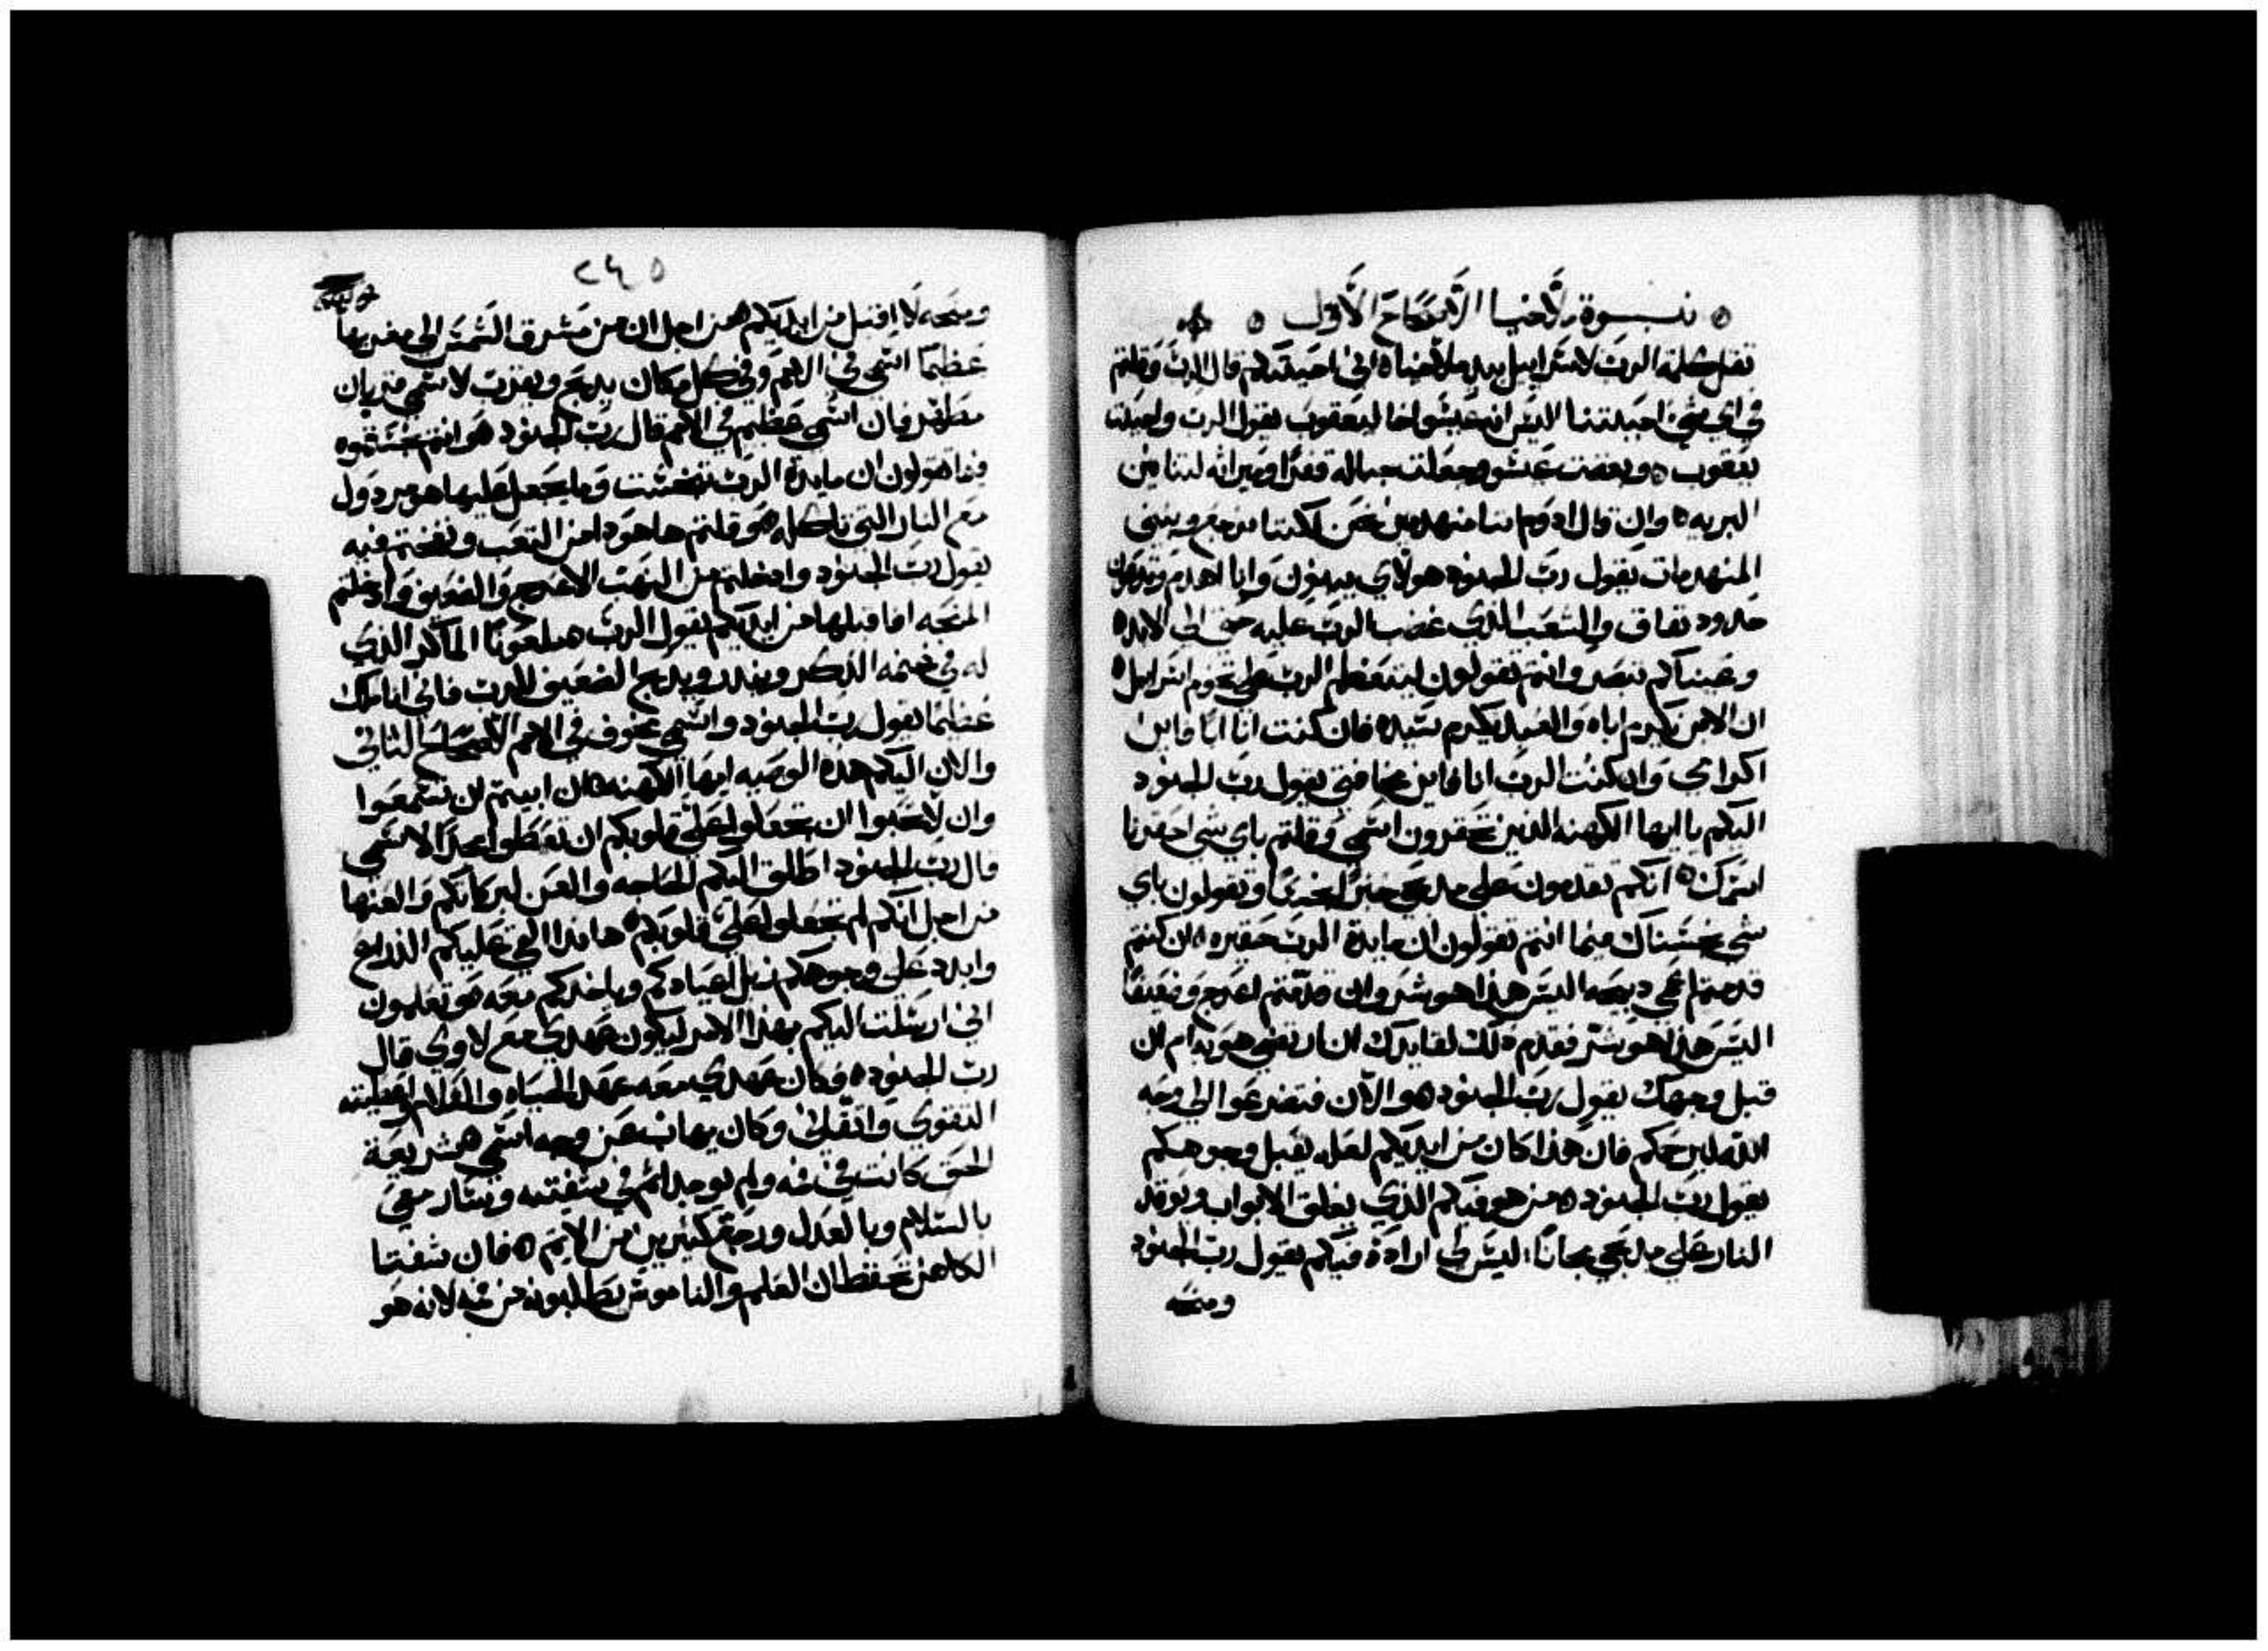 نبوة ملاخيا الاصحاح الاول
ثقل كلمة الرب لاسراييل بيد ملاخيا ه اني احببتكم قال الرب وقلتم
في اي شي احببتنا اليس ان عيسو اخا ليعقوب يقول الرب واحببت
يعقوب ه وبغضت عيسو وجعلت جباله قفرا وميراثه لتنانين
البريه ه وان قال ادوم اننا منهدمين نحن لكننا نرجع ونبني
المنهدمات يقول رب الجنود هولاي يبنون وانا اهدم وتدعون
حدود نفاق والشعب الذي غضب الرب عليه حتى الى الابد ه
وعيناكم تبصر وانتم تقولون ليتعظم الرب على تخوم اسراييل ه
ان الابن يكرم اباه والعبد يكرم سيده فان كنت انا ابا فاين
اكرامي وان كنت الرب انا فاين مخافتي يقول رب الجنود
اليكم يا ايها الكهنه الذين تحقرون اسمي وقلتم باي شي احقرنا
اسمك ه انكم تقدمون على مدبحي خبزا نجسا وتقولون باي
شي نجسناك منما انتم تقولون ان مايدة الرب حقيره ه ان كنتم
قدمتم اعمى دبيحه اليس هذا هو شر وان قدمتم اعرج وضعيفا
اليس هذا هو شر فقدم ذلك لقايدك ان ارتضي هو به ام ان
قبل وجهك يقول رب الجنود هو الان فتضرعوا الى وجه
الله ليرحمكم فان هذا كان من ايديكم لعله يقبل وجوهكم
يقول رب الجنود ه من هو فيكم الذي يغلق الابواب ويوقد
النار على مدبحي مجانا ليس لي ارادة فيكم يقول رب الجنود
ومنحه
٢٤٥
ومنحه لا اقبل من ايديكم ه من اجل ان من مشرق الشمس الى مغربها
عظيما اسمي في الامم وفي كل مكان يدبح ويقرب لاسمي قربان
مطهر فان اسمي عظيم في الامم قال رب الجنود هو انتم نجستموه
فيما تقولون ان مايدة الرب تنجست وما يجعل عليها هو مردول
مع النار التي تاكله هو قلتم ها هودا من التعب ونفختم فيه
يقول رب الجنود وادخلتم من النهب الاعرج والضعيف وادخلتم
المنحه افاقبلها من ايديكم يقول الرب ه ملعونا الماكر الذي
له في غنمه الذكر وينذر ويدبح الضعيف للرب فاني انا ملك
عظيما يقول رب الجنود واسمي مخوف في الامم الاصحاح الثاني
والان اليكم هذه الوصيه ايها الكهنه ه ان ابيتم ان تسمعوا
وان لا تحبوا ان تجعلوا على قلوبكم ان تعطوا مجدا لاسمي
قال رب الجنود اطلق اليكم الحاجه والعن لبركاتكم والعنها
من اجل انكم لم تجعلوا على قلوبكم ه هاندا القي عليكم الذراع
وابدد على وجوهكم زبل اعيادكم وياخدكم معه هو تعلمون
اني ارسلت اليكم بهذا الامر ليكون عهدي مع لاوي قال
رب الجنود ه وكان عهدي معه عهد الحياه والسلام واعطيته
التقوى واتقاني وكان يهاب من وجه اسمي ه شريعة
الحق كانت في فمه ولم يوجد اثم في شفتيه وسار معي
بالسلام وبالعدل ورجع كثيرين من الاثم ه فان شفتا
الكاهن تحفظان العلم والناموس يطلبونه من فمه لانه هو